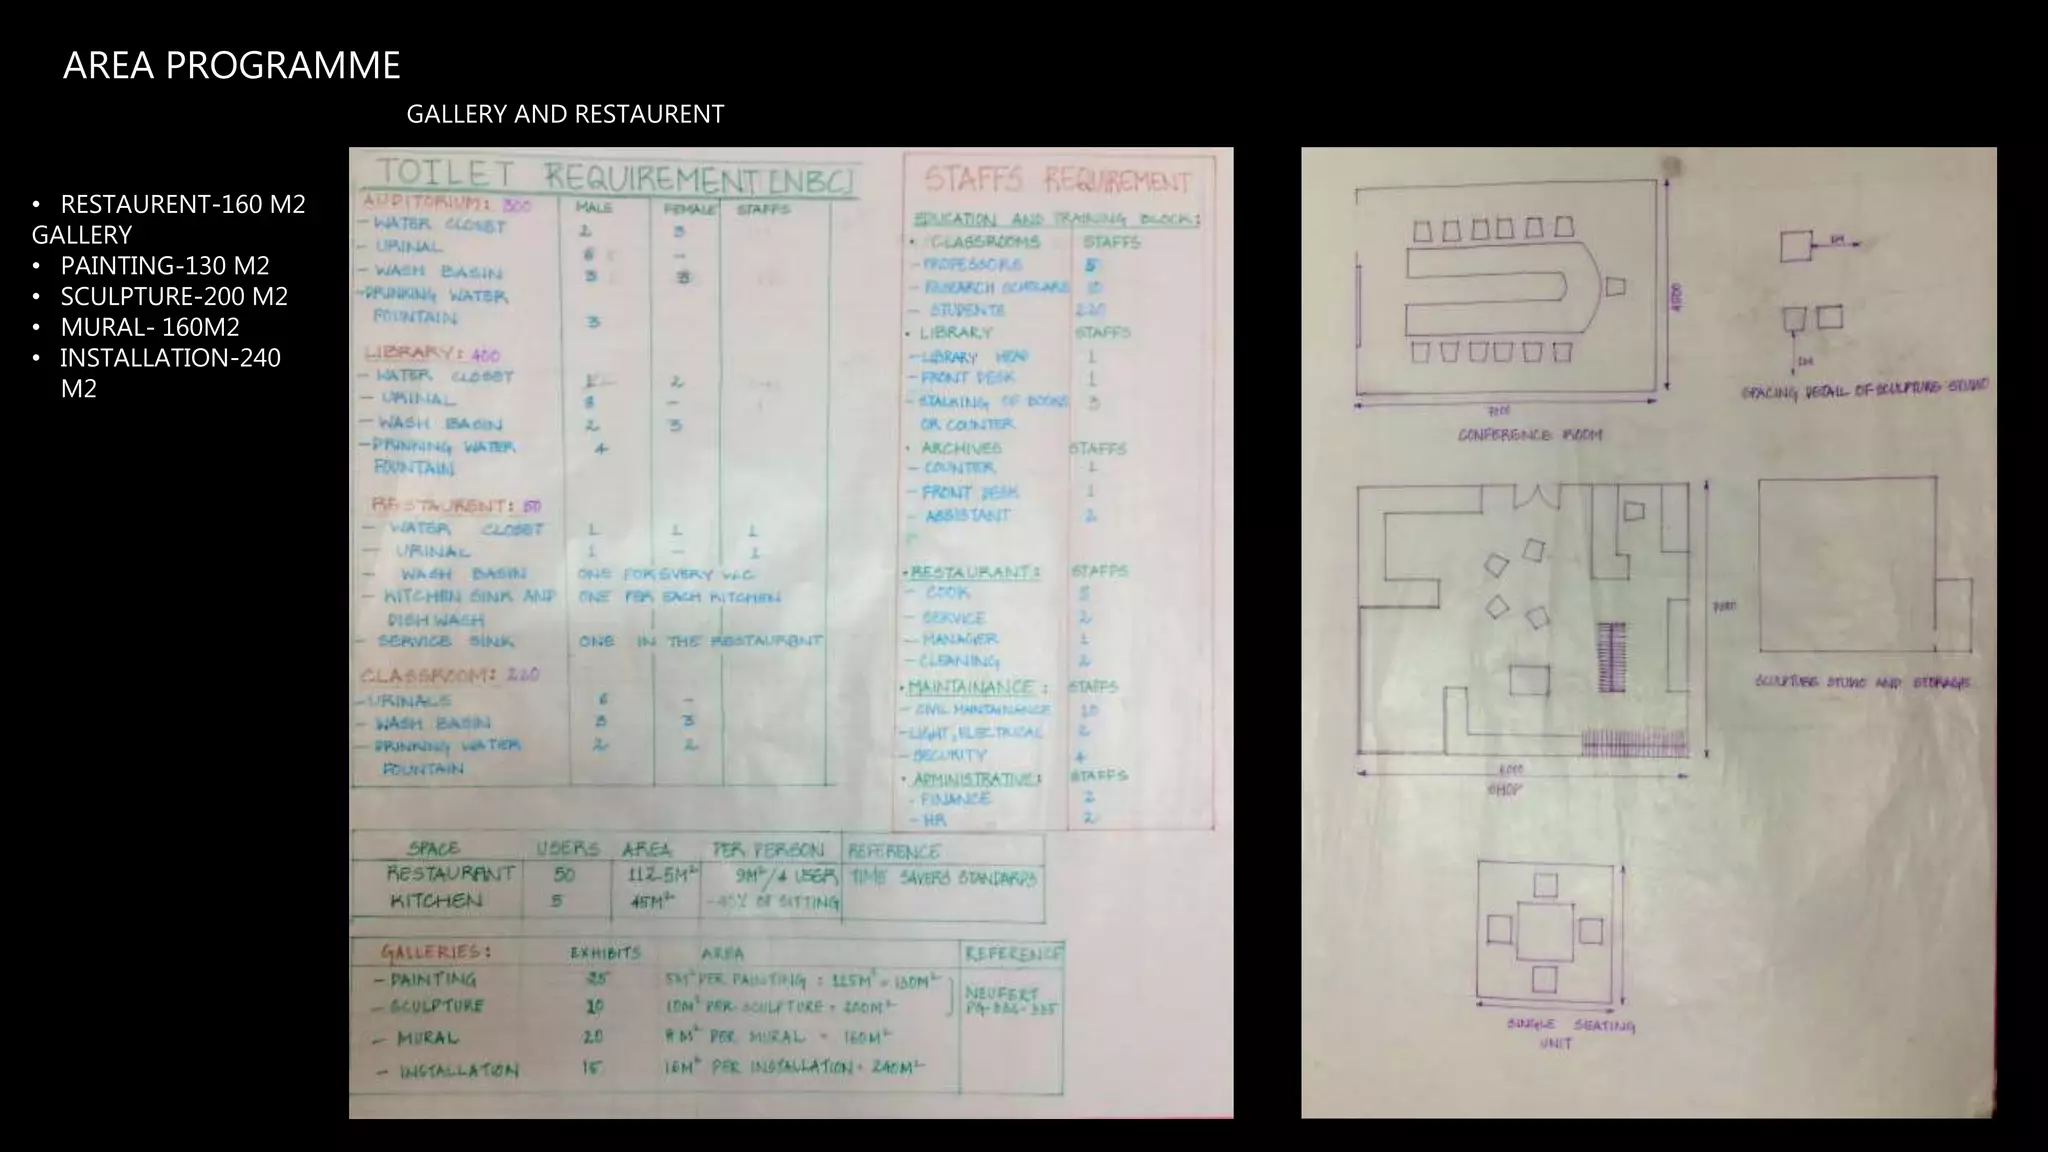 AREA PROGRAMME
GALLERY AND RESTAURENT
• RESTAURENT-160 M2
GALLERY
• PAINTING-130 M2
• SCULPTURE-200 M2
• MURAL- 160M2
• INSTALLATION-240
M2
TOILET REQUIREMENT [NBC]
AUDITORIUM: 300 MALE FEMALE STAFFS
- WATER CLOSET 2 3
- URINAL 6 -
- WASH BASIN 3 3
- DRINKING WATER
FOUNTAIN 3
LIBRARY: 400
- WATER CLOSET 1 2
- URINAL 8 -
- WASH BASIN 2 3
- DRINKING WATER 4
FOUNTAIN
RESTAURENT: 50
- WATER CLOSET 1 1 1
- URINAL 1 - 1
- WASH BASIN ONE FOR EVERY W.C
- KITCHEN SINK AND ONE PER EACH KITCHEN
DISH WASH
- SERVICE SINK ONE IN THE RESTAURENT
CLASSROOM: 220
- URINALS 6 -
- WASH BASIN 3 3
- DRINKING WATER 2 2
FOUNTAIN
STAFFS REQUIREMENT
EDUCATION AND TRAINING BLOCK:
• CLASSROOMS STAFFS
- PROFESSORS 5
- RESEARCH SCHOLARS 10
- STUDENTS 220
• LIBRARY STAFFS
- LIBRARY HEAD 1
- FRONT DESK 1
- STALKING OF BOOKS 3
OR COUNTER
• ARCHIVES STAFFS
- COUNTER 1
- FRONT DESK 1
- ASSISTANT 2
• RESTAURANT: STAFFS
- COOK 5
- SERVICE 2
- MANAGER 1
- CLEANING 2
• MAINTAINANCE: STAFFS
- CIVIL MAINTAINANCE 10
- LIGHT, ELECTRICAL 2
- SECURITY 4
• ADMINISTRATIVE: STAFFS
- FINANCE 2
- HR 2
SPACE USERS AREA PER PERSON REFERENCE
RESTAURANT 50 112.5M² 9M²/4 USER TIME SAVERS STANDARDS
KITCHEN 5 45M² -40% OF SITTING
GALLERIES: EXHIBITS AREA REFERENCE
- PAINTING 25 5M² PER PAINTING = 125M² = 130M²
- SCULPTURE 20 10M² PER SCULPTURE = 200M²
NEUFERT
- MURAL 20 8 M² PER MURAL = 160M²
- INSTALLATION 15 16M² PER INSTALLATION = 240M²
4500
7000
CONFERENCE ROOM
SPACING DETAIL OF SCULPTURE STUDIO
6000
SHOP
SCULPTURE STUDIO AND STORAGE
SINGLE SEATING
UNIT